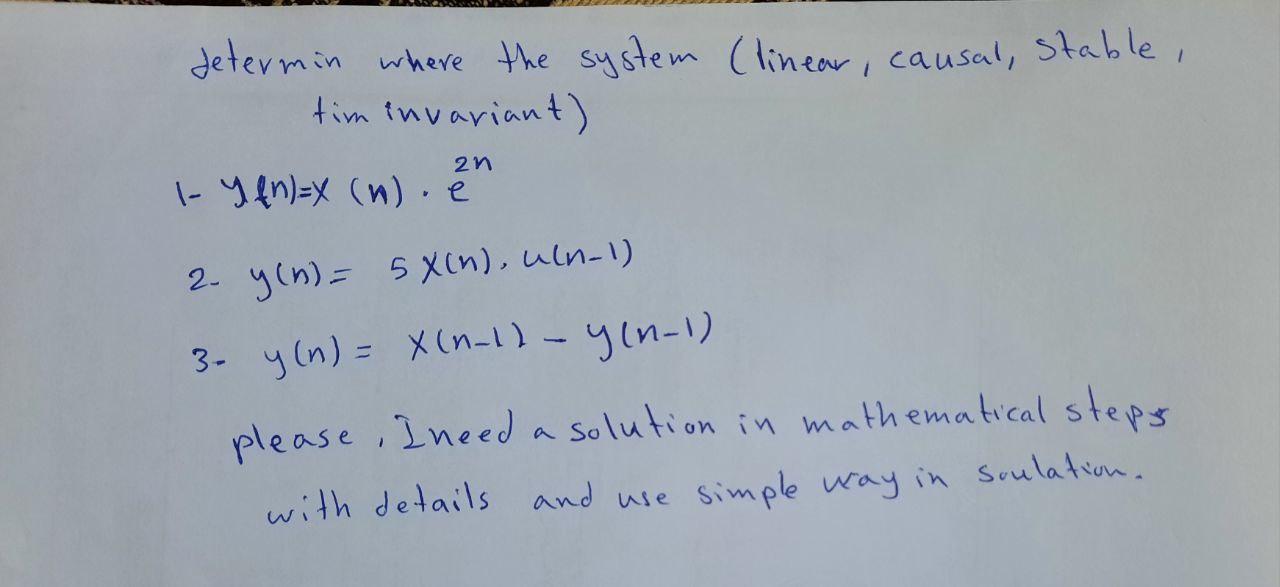 determin where the system (linear, causal, stable,
tim invariant)
1- y(n)=x (n) . e^2n
2- y(n) = 5 x(n). u(n-1)
3- y(n) = x(n-1) - y(n-1)
please, I need a solution in mathematical steps
with details and use simple way in soulation.